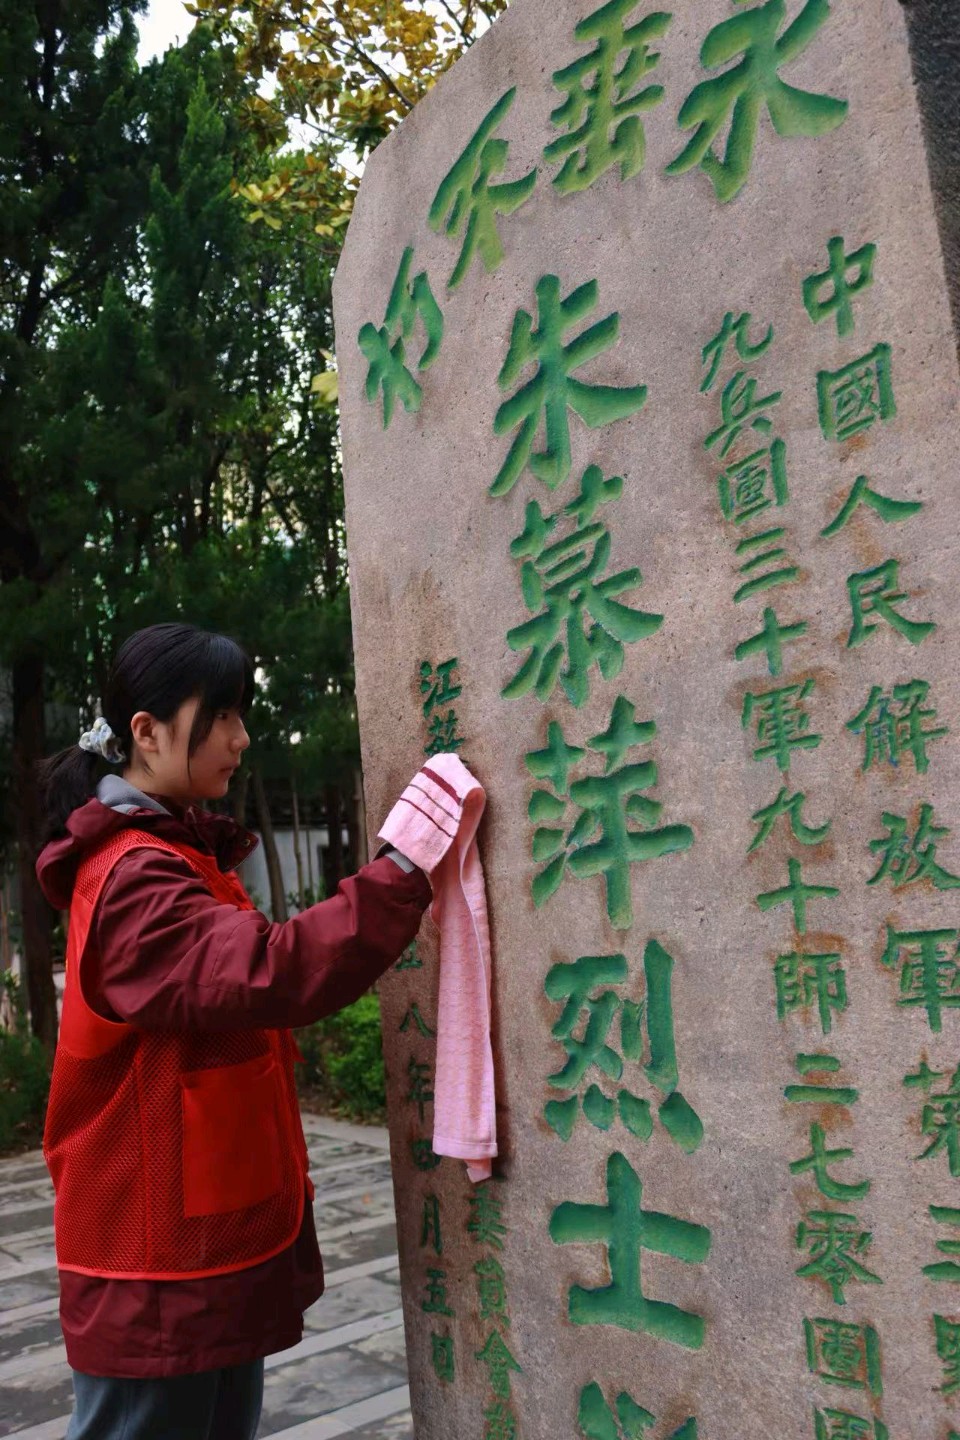 永垂不朽
中國人民解放軍第三野
九兵團三十軍九十師二七零團
朱慕萍烈士
江蘇
委員會
五八年四月五日